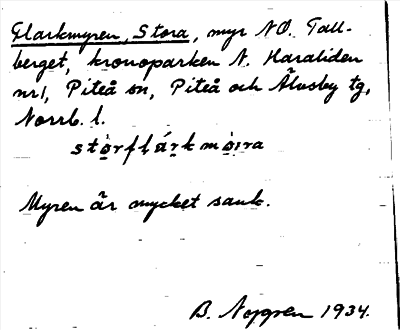 Flarkmyren, Stora, myr NO. Tall-
berget, kronoparken N. Haraliden
nr 1, Piteå sn, Piteå och Älvsby tg,
Norrb. l.
stórflárkmo̩ıra
Myren är mycket sank.
B. Nygren 1934.